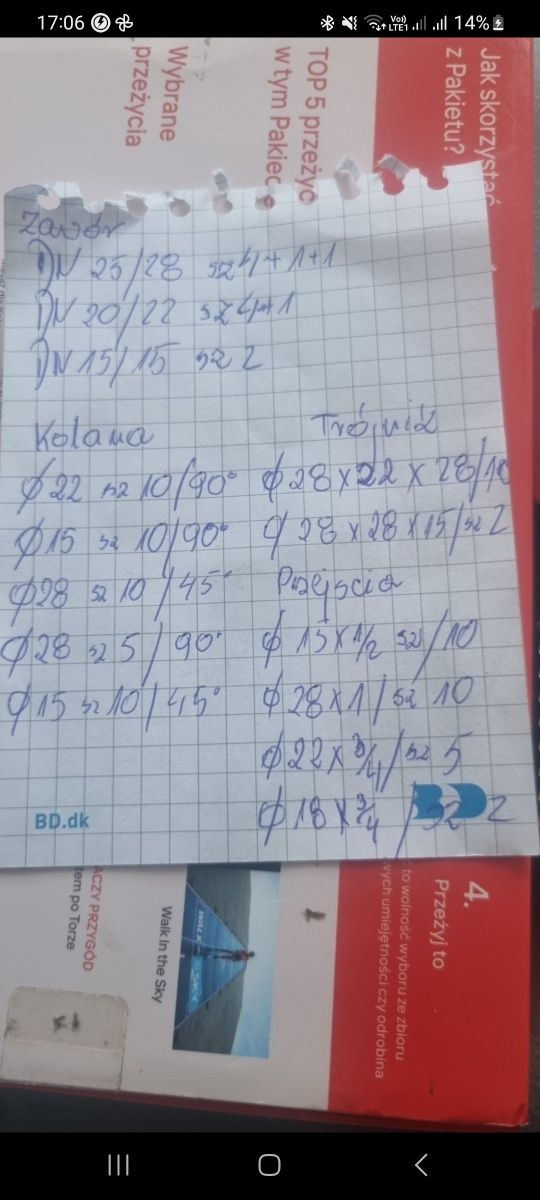 17:06
Vo)) LTE1 14%
Jak skorzystać
z Pakietu?
TOP 5 przeżyć
w tym Pakiec
Wybrane
przeżycia
Zawór
DN 25/28 sz 4+1+1
DN 20/22 sz 4+1
DN 15/15 sz 2
Kolana
φ 22 sz 10/90°
φ 15 sz 10/90°
φ 28 sz 10/45°
φ 28 sz 5/90°
φ 15 sz 10/45°
Trójnik
φ 28 x 22 x 28/10
φ 28 x 28 x 15/sz 2
Przejścia
φ 15 x 1/2 sz/10
φ 28 x 1/sz 10
φ 22 x 3/4/sz 5
φ 18 x 3/4/sz 2
BD.dk
4.
Przeżyj to
to wolność wyboru ze zbioru
wych umiejętności czy odrobina
Walk In the Sky
ACZY PRZYGÓD
tem po Torze